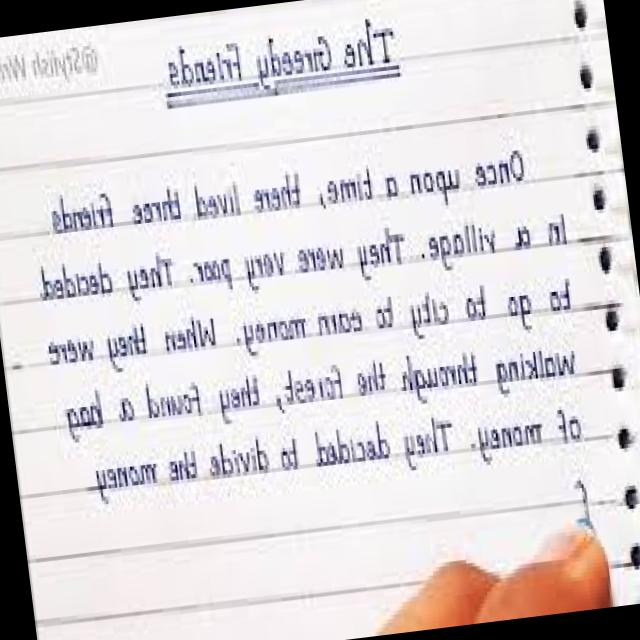 @Stylish Wri
The Greedy Friends
Once upon a time, there lived three friends
in a village. They were very poor. They decided
to go to city to earn money. When they were
walking through the forest, they found a bag
of money. They decided to divide the money